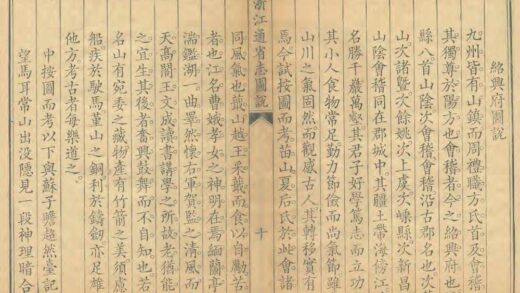 紹興府圖說
九州皆有山鎮而周禮職方氏首及會稽
其獨尊於陽方也會稽者今之紹興府也
縣八首山陰次會稽會稽沿古郡名也次
山次諸暨次餘姚次上虞次嵊縣次新昌
山陰會稽同在郡城中其疆土帶海傍江
名勝千巖萬壑其君子好學篤志而立功
其小人食物常足勤力節儉而尚氣節雖
山川之氣固然而觀感古人其轉移實有
焉今試按圖而考苗山夏后氏於此會諸
浙江通省志圖說 十
同風氣也蕺山越王采蕺而食以自勵苦
者也江名曹娥孝女之神明在焉緬蘭亭
湍鑑湖一曲睪然懷右軍賀監之清風而
天高閣王文成讀書講學之所故老猶能
之宜生其後者奮興鼓舞而不自知也若
名山有宛委之藏物產有竹箭之美須慮
船疾於駛馬菫山之銅利於鑄劒亦足雄
他方考古者每樂道之
中按圖而考以下與蘇子瞻超然臺記
望馬耳常山出沒隱見一段神理暗合